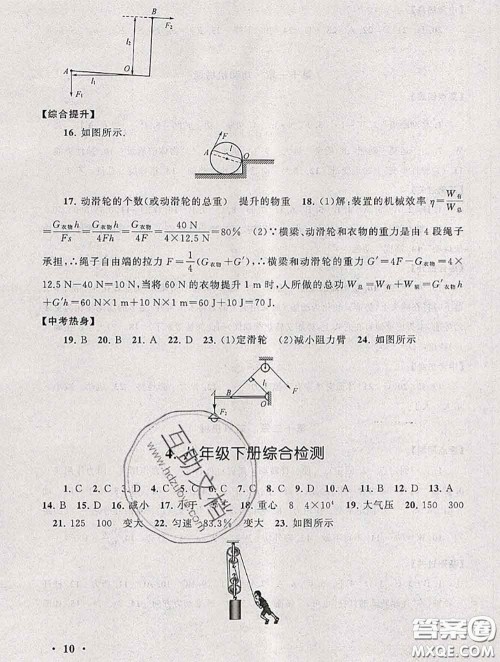 B
F₂
l₂
A
O
l₁
F₁
【综合提升】
16. 如图所示.
F
A
l
O
17. 动滑轮的个数(或动滑轮的总重)　提升的物重　18. (1)解:装置的机械效率 η=W有/W总
=G衣物h/Fs=G衣物h/4Fh=G衣物/4F=40 N/4×12.5 N=80%　(2)∵横梁、动滑轮和衣物的重力是由4段绳子
承担,∴绳子自由端的拉力 F=1/4(G衣物+G′),∴横梁和动滑轮的重力 G′=4F-G衣物=4×
12.5N-40N=10N,当将60N的衣物提升1m时,人所做的总功 W总=W有+W额=G衣物h
+G′h=60N×1m+10N×1m=60J+10J=70J.
【中考热身】
19. B　20. B　21. A　22. D　23. (1)定滑轮　(2)减小阻力臂　24. 如图所示
A
B
l₁
F
O
F₂
年级下册综合检测
1. C　2. C　3. D　4. C　5. C　6. C　7. D　8. B　9. A　10. D　11. B　12. D　13. A
14. B　15. D　16. 减小　17. 小于　小于　18. 重心　8　4×10⁴　19. 大气压　20. 150　300
21. 125　100　变大　22. 匀速　83.3%　变大　23. 如图所示
· 10 ·
互助文档
www.hdzuoye.com
答案圈
MXQE.COM